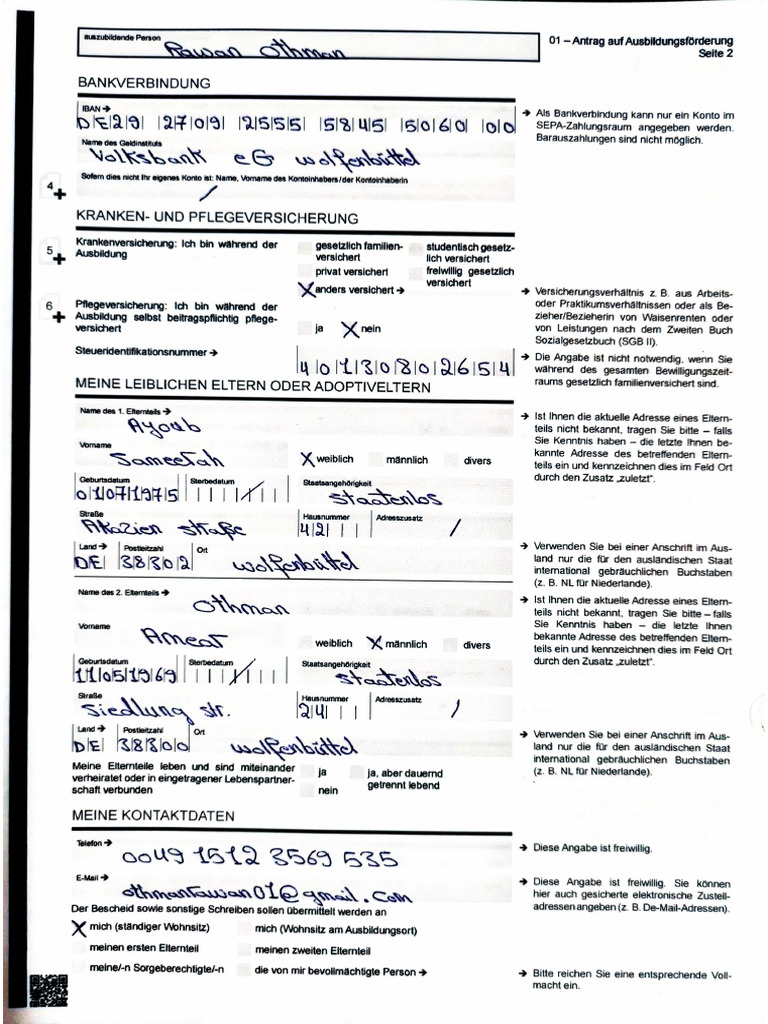 auszubildende Person
Rawan Othman
01 – Antrag auf Ausbildungsförderung
Seite 2
BANKVERBINDUNG
IBAN →
DE29 2709 2555 5845 5060 00
→ Als Bankverbindung kann nur ein Konto im
SEPA-Zahlungsraum angegeben werden.
Barauszahlungen sind nicht möglich.
Name des Geldinstituts
Volksbank eG wolfenbüttel
4 +
Sofern dies nicht Ihr eigenes Konto ist: Name, Vorname des Kontoinhabers/der Kontoinhaberin
/
KRANKEN- UND PFLEGEVERSICHERUNG
5 +
Krankenversicherung: Ich bin während der
Ausbildung
gesetzlich familien-
versichert
studentisch gesetz-
lich versichert
privat versichert
freiwillig gesetzlich
versichert
X anders versichert →
→ Versicherungsverhältnis z. B. aus Arbeits-
oder Praktikumsverhältnissen oder als Be-
zieher/Bezieherin von Waisenrenten oder
von Leistungen nach dem Zweiten Buch
Sozialgesetzbuch (SGB II).
6 +
Pflegeversicherung: Ich bin während der
Ausbildung selbst beitragspflichtig pflege-
versichert
ja X nein
Steueridentifikationsnummer →
40130802654
→ Die Angabe ist nicht notwendig, wenn Sie
während des gesamten Bewilligungszeit-
raums gesetzlich familienversichert sind.
MEINE LEIBLICHEN ELTERN ODER ADOPTIVELTERN
Name des 1. Elternteils →
Ayoub
→ Ist Ihnen die aktuelle Adresse eines Eltern-
teils nicht bekannt, tragen Sie bitte – falls
Sie Kenntnis haben – die letzte Ihnen be-
kannte Adresse des betreffenden Eltern-
teils ein und kennzeichnen dies im Feld Ort
durch den Zusatz „zuletzt".
Vorname
Sameetah
X weiblich männlich divers
Geburtsdatum Sterbedatum Staatsangehörigkeit
01071975 / staatenlos
Straße Hausnummer Adresszusatz
Akazien straße 42 /
Land → Postleitzahl Ort
DE 38302 wolfenbüttel
→ Verwenden Sie bei einer Anschrift im Aus-
land nur die für den ausländischen Staat
international gebräuchlichen Buchstaben
(z. B. NL für Niederlande).
Name des 2. Elternteils →
Othman
→ Ist Ihnen die aktuelle Adresse eines Eltern-
teils nicht bekannt, tragen Sie bitte – falls
Sie Kenntnis haben – die letzte Ihnen
bekannte Adresse des betreffenden Eltern-
teils ein und kennzeichnen dies im Feld Ort
durch den Zusatz „zuletzt".
Vorname
weiblich X männlich divers
Geburtsdatum Sterbedatum Staatsangehörigkeit
11051969 / staatenlos
Straße Hausnummer Adresszusatz
Siedlung str. 24 /
Land → Postleitzahl Ort
DE 38300 wolfenbüttel
→ Verwenden Sie bei einer Anschrift im Aus-
land nur die für den ausländischen Staat
international gebräuchlichen Buchstaben
(z. B. NL für Niederlande).
Meine Elternteile leben und sind miteinander
verheiratet oder in eingetragener Lebenspartner-
schaft verbunden
ja
ja, aber dauernd
getrennt lebend
nein
MEINE KONTAKTDATEN
Telefon →
0049 1512 3569 535
→ Diese Angabe ist freiwillig.
E-Mail →
othmanrawan01@gmail.com
→ Diese Angabe ist freiwillig. Sie können
hier auch gesicherte elektronische Zustell-
adressen angeben (z. B. De-Mail-Adressen).
Der Bescheid sowie sonstige Schreiben sollen übermittelt werden an
X mich (ständiger Wohnsitz) mich (Wohnsitz am Ausbildungsort)
meinen ersten Elternteil meinen zweiten Elternteil
meine/-n Sorgeberechtigte/-n die von mir bevollmächtigte Person →
→ Bitte reichen Sie eine entsprechende Voll-
macht ein.